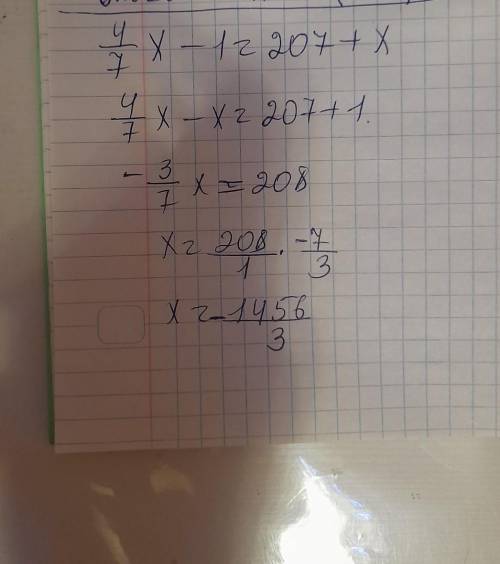 4/7 x - 1 = 207 + x
4/7 x - x = 207 + 1.
- 3/7 x = 208
x = 208/1 · -7/3
x = -1456/3